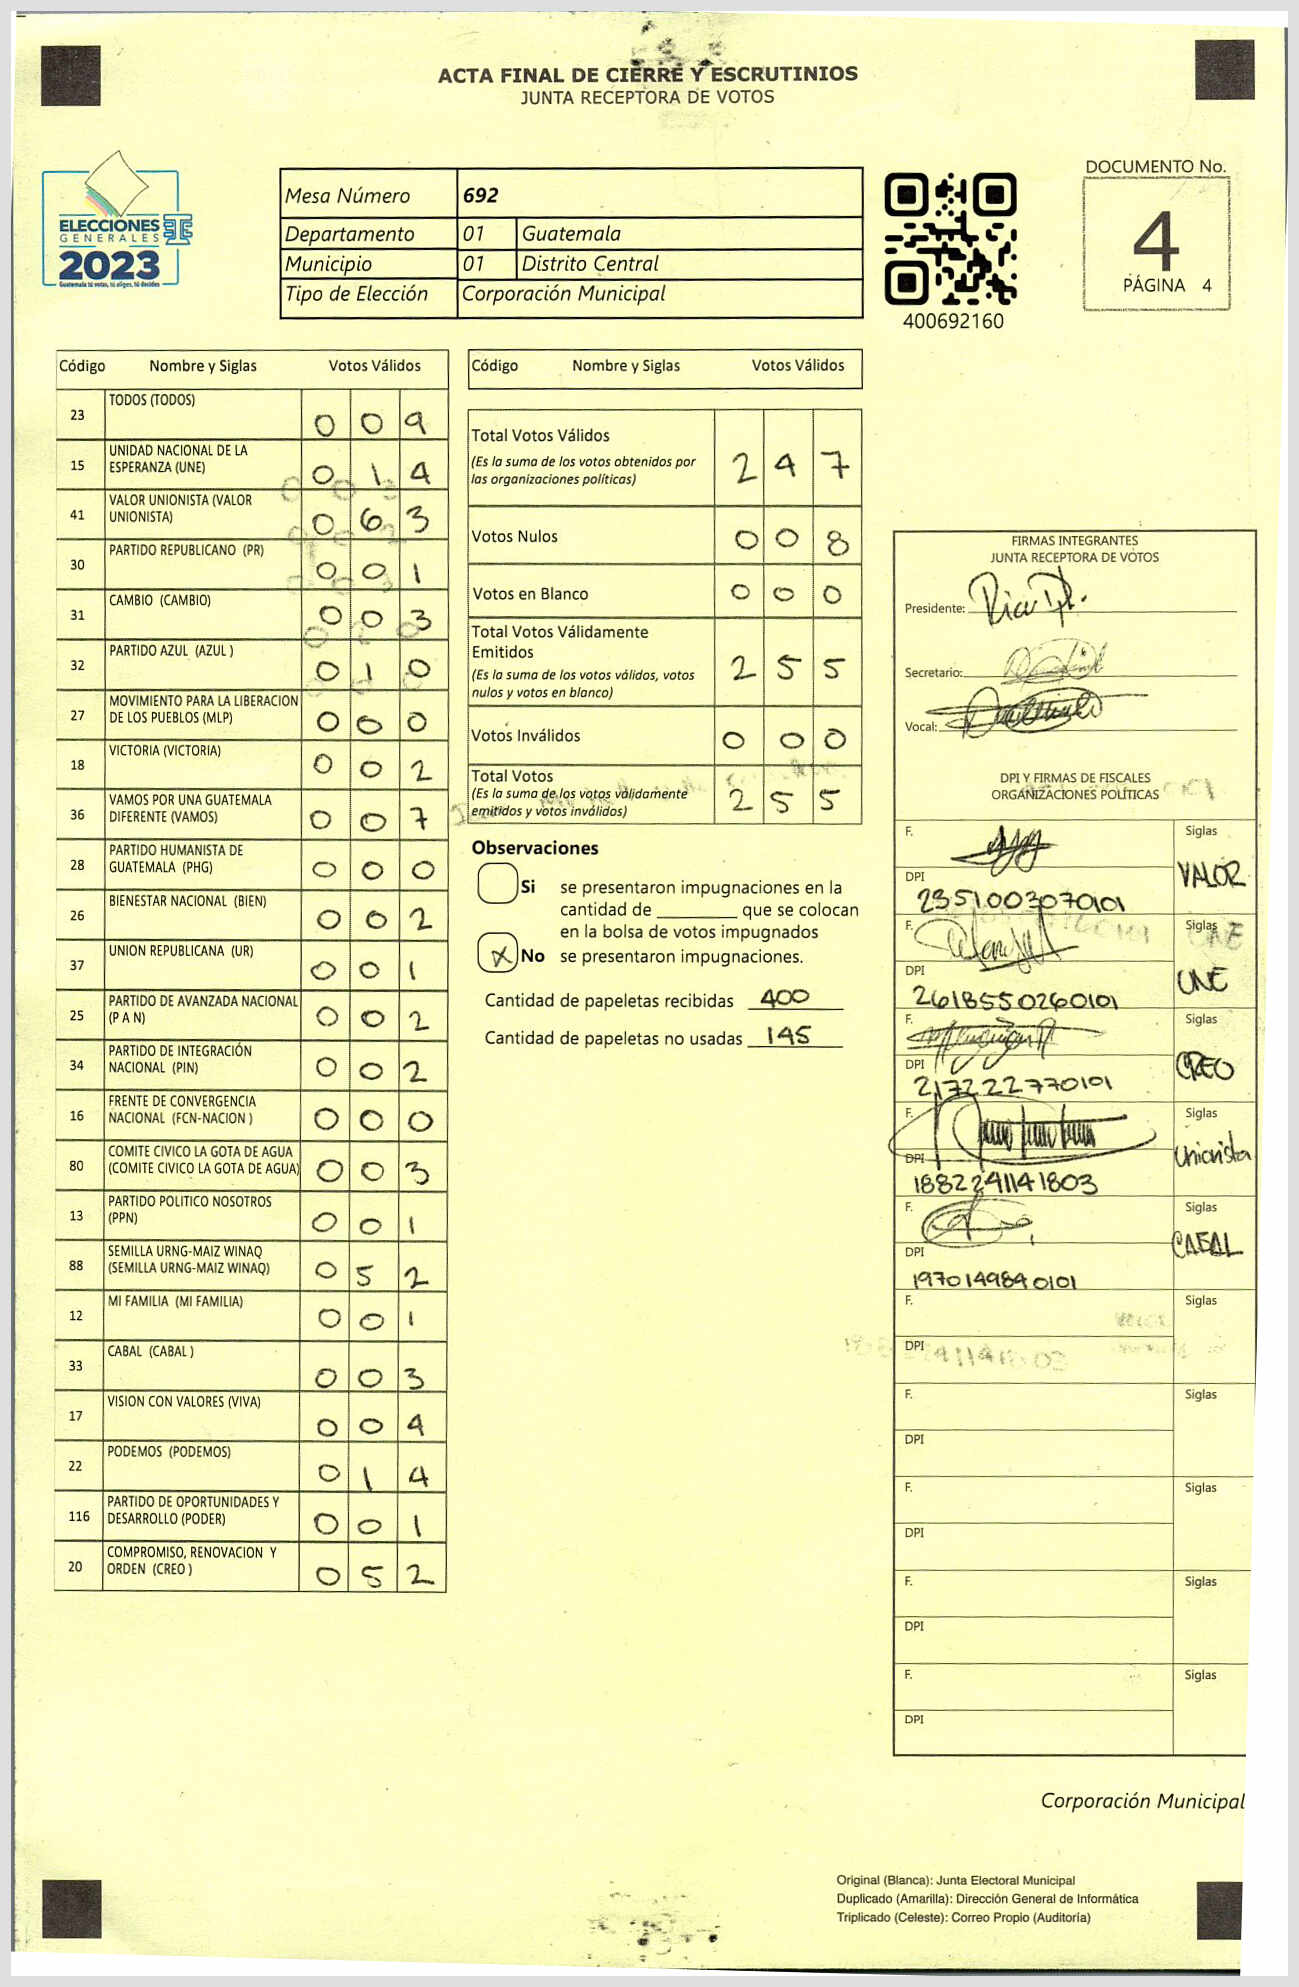 ACTA FINAL DE CIERRE Y ESCRUTINIOS
JUNTA RECEPTORA DE VOTOS
ELECCIONES
GENERALES
2023
Guatemala tú votas, tú eliges, tú decides
Mesa Número 692
Departamento 01 Guatemala
Municipio 01 Distrito Central
Tipo de Elección Corporación Municipal
400692160
DOCUMENTO No.
4
PÁGINA 4
Código Nombre y Siglas Votos Válidos
23 TODOS (TODOS) 0 0 9
15 UNIDAD NACIONAL DE LA
ESPERANZA (UNE) 0 1 4
41 VALOR UNIONISTA (VALOR
UNIONISTA) 0 63 3
30 PARTIDO REPUBLICANO (PR) 0 0 1
31 CAMBIO (CAMBIO) 0 0 3
32 PARTIDO AZUL (AZUL ) 0 1 0
27 MOVIMIENTO PARA LA LIBERACION
DE LOS PUEBLOS (MLP) 0 0 0
18 VICTORIA (VICTORIA) 0 0 2
36 VAMOS POR UNA GUATEMALA
DIFERENTE (VAMOS) 0 0 7
28 PARTIDO HUMANISTA DE
GUATEMALA (PHG) 0 0 0
26 BIENESTAR NACIONAL (BIEN) 0 0 2
37 UNION REPUBLICANA (UR) 0 0 1
25 PARTIDO DE AVANZADA NACIONAL
(P A N) 0 0 2
34 PARTIDO DE INTEGRACIÓN
NACIONAL (PIN) 0 0 2
16 FRENTE DE CONVERGENCIA
NACIONAL (FCN-NACION ) 0 0 0
80 COMITE CIVICO LA GOTA DE AGUA
(COMITE CIVICO LA GOTA DE AGUA) 0 0 3
13 PARTIDO POLITICO NOSOTROS
(PPN) 0 0 1
88 SEMILLA URNG-MAIZ WINAQ
(SEMILLA URNG-MAIZ WINAQ) 0 5 2
12 MI FAMILIA (MI FAMILIA) 0 0 1
33 CABAL (CABAL ) 0 0 3
17 VISION CON VALORES (VIVA) 0 0 4
22 PODEMOS (PODEMOS) 0 1 4
116 PARTIDO DE OPORTUNIDADES Y
DESARROLLO (PODER) 0 0 1
20 COMPROMISO, RENOVACION Y
ORDEN (CREO ) 0 5 2
Código Nombre y Siglas Votos Válidos
Total Votos Válidos
(Es la suma de los votos obtenidos por
las organizaciones políticas) 2 4 7
Votos Nulos 0 0 8
Votos en Blanco 0 0 0
Total Votos Válidamente
Emitidos
(Es la suma de los votos válidos, votos
nulos y votos en blanco) 2 5 5
Votos Inválidos 0 0 0
Total Votos
(Es la suma de los votos válidamente
emitidos y votos inválidos) 2 5 5
Observaciones
Si se presentaron impugnaciones en la
cantidad de ________ que se colocan
en la bolsa de votos impugnados
X No se presentaron impugnaciones.
Cantidad de papeletas recibidas 400
Cantidad de papeletas no usadas 145
FIRMAS INTEGRANTES
JUNTA RECEPTORA DE VOTOS
Presidente:
Secretario:
Vocal:
DPI Y FIRMAS DE FISCALES
ORGANIZACIONES POLÍTICAS
F. Siglas
VALOR
DPI
2351003070101
F. Siglas
UNE
DPI
2618550260101
F. Siglas
CREO
DPI
217222770101
F. Siglas
Unionista
DPI
1882291141803
F. Siglas
CABAL
DPI
1970149840101
F. Siglas
DPI
F. Siglas
DPI
F. Siglas
DPI
F. Siglas
DPI
F. Siglas
DPI
Corporación Municipal
Original (Blanca): Junta Electoral Municipal
Duplicado (Amarilla): Dirección General de Informática
Triplicado (Celeste): Correo Propio (Auditoría)